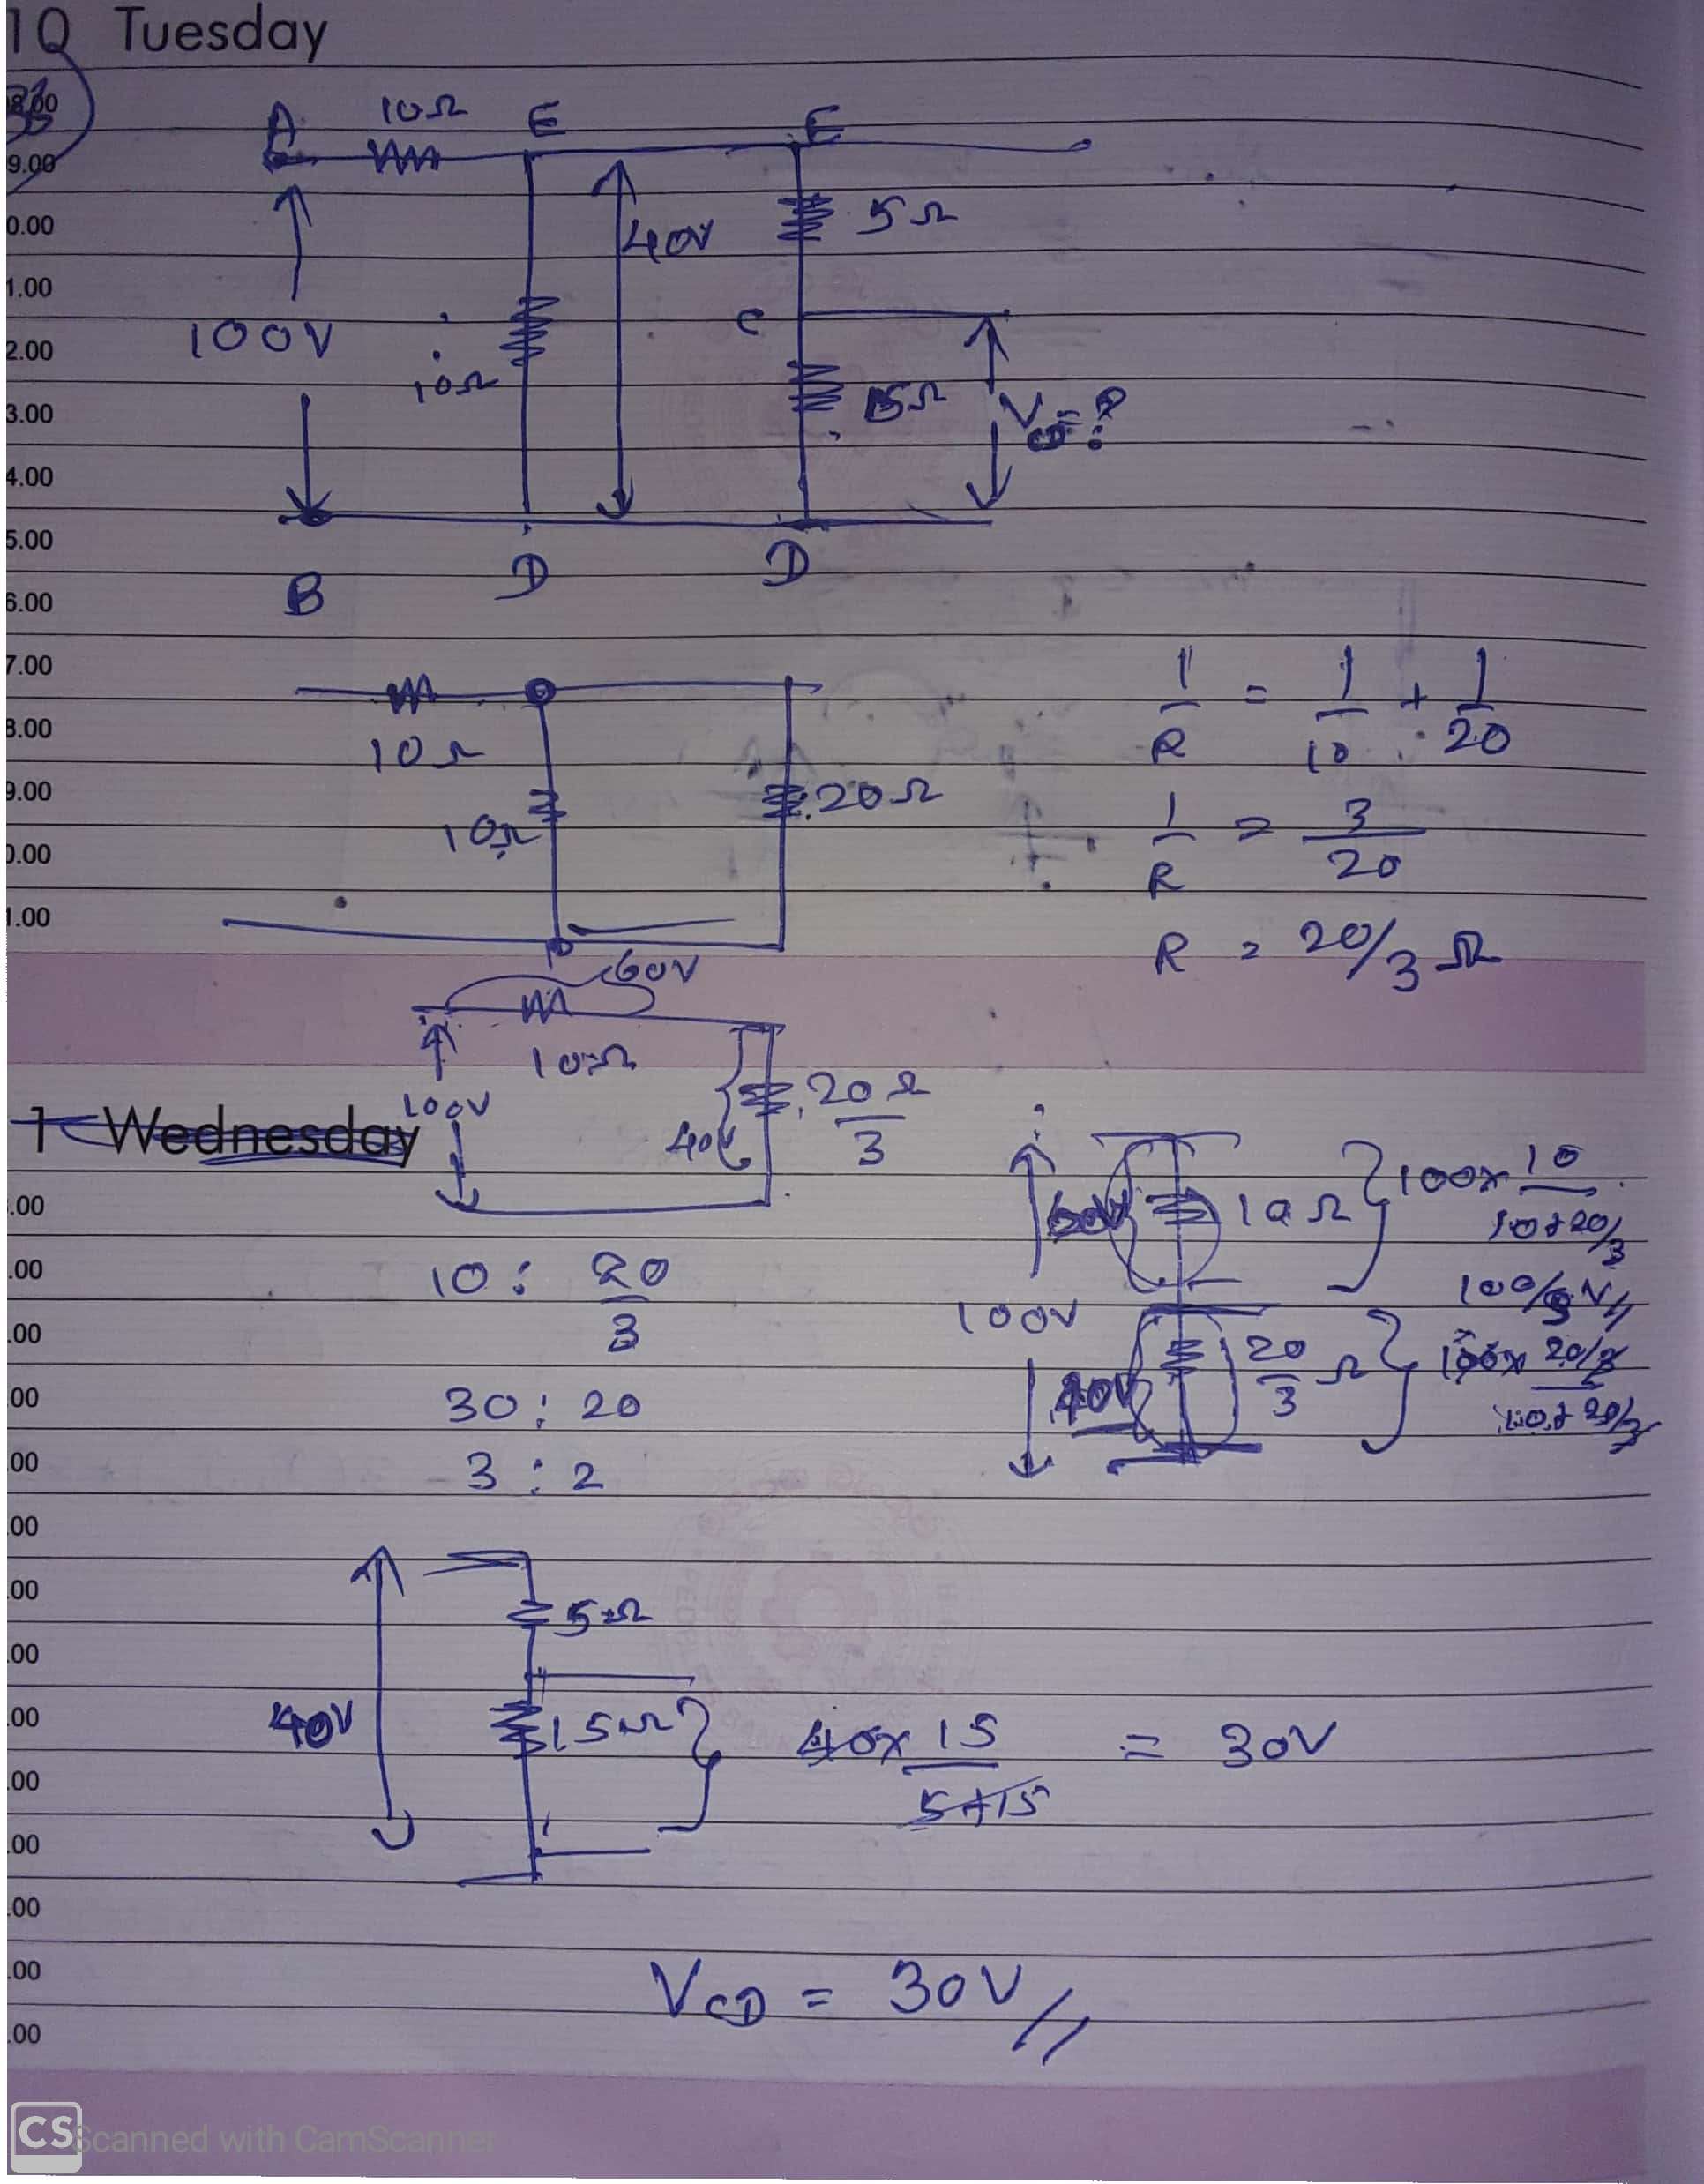 10 Tuesday
8.00
9.00
0.00
1.00
2.00
3.00
4.00
5.00
6.00
7.00
8.00
9.00
0.00
1.00
A 10Ω E E
5Ω
40V
C
100V
10Ω
15Ω V_CD = ?
B D D
10Ω
10Ω
20Ω
1/R = 1/10 + 1/20
1/R = 3/20
R = 20/3 Ω
60V
10Ω
100V
40V
20Ω/3
1 Wednesday
.00
.00
.00
.00
.00
.00
.00
.00
.00
.00
.00
.00
.00
.00
10 : 20/3
30 : 20
3 : 2
100V
60V 10Ω } 100x 10/10+20/3
40V 20/3 Ω } 100x 20/3/10+20/3
40V
5Ω
15Ω } 40x 15/5+15 = 30V
V_CD = 30V //
CS Scanned with CamScanner